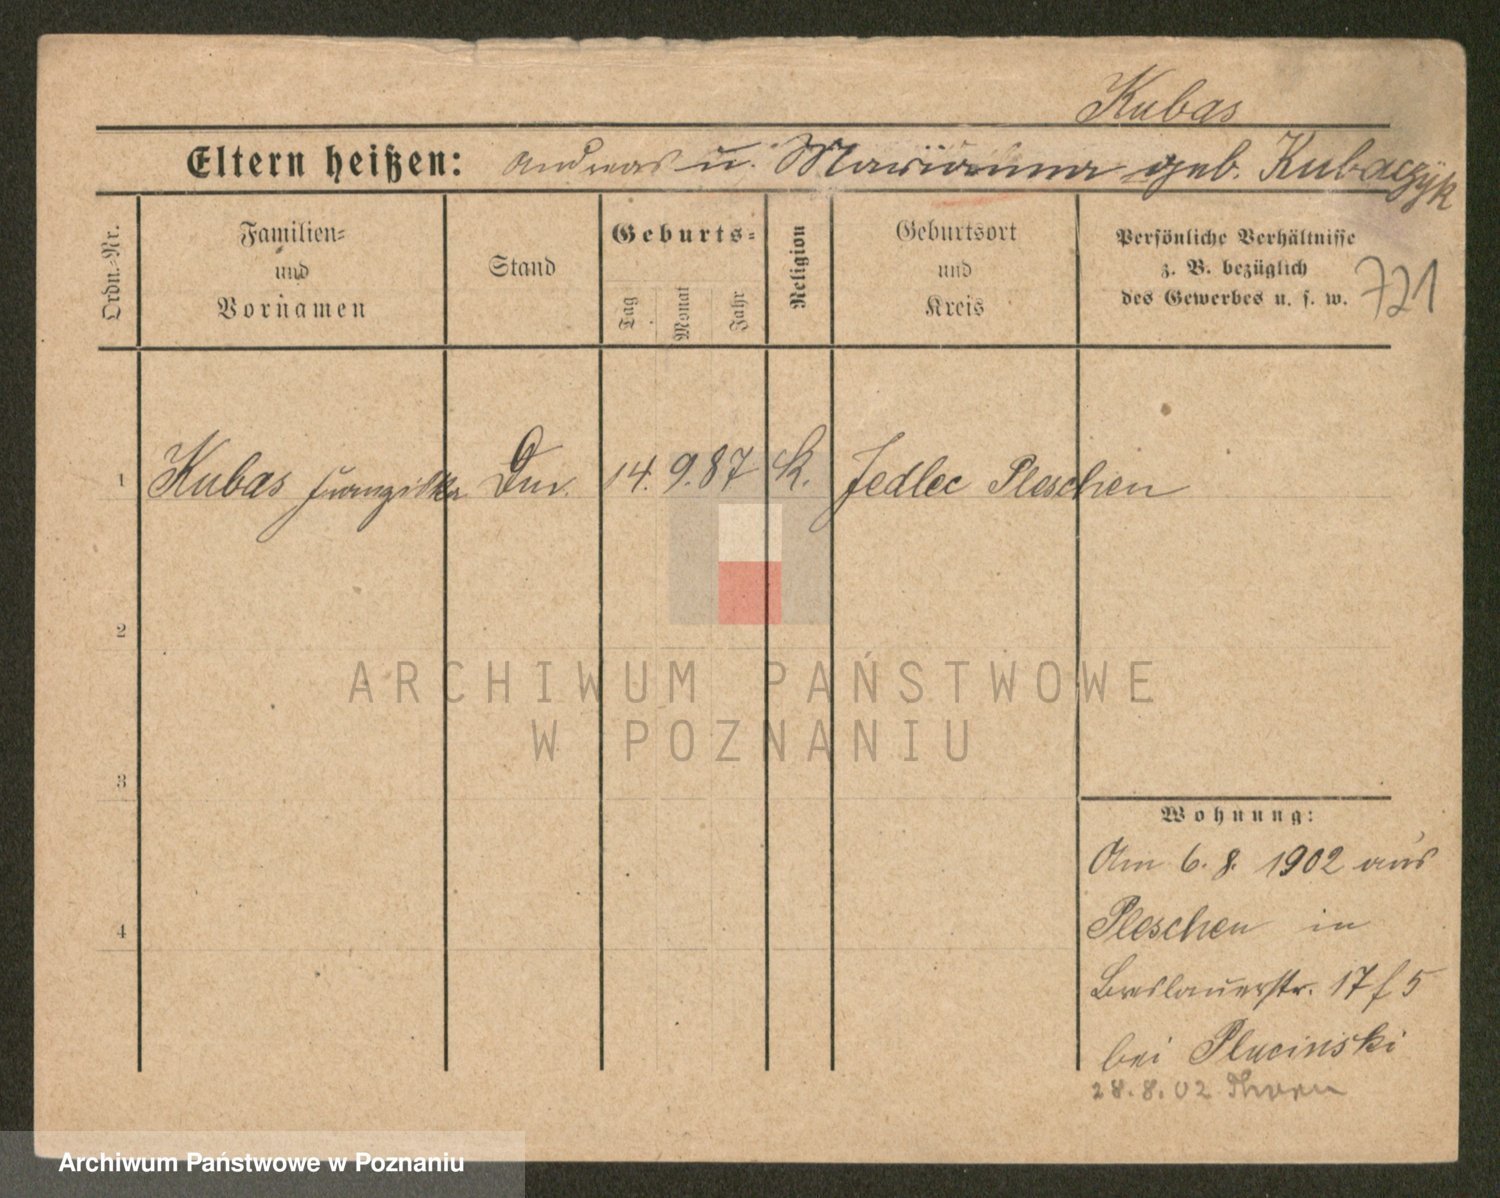 Kubas
Eltern heißen: Andreas u. Marianna geb. Kubaczyk
Ordn.-Nr.
Familien-
und
Vornamen
Stand
Geburts-
Tag
Monat
Jahr
Religion
Geburtsort
und
Kreis
Persönliche Verhältnisse
z. B. bezüglich
des Gewerbes u. s. w.
721
1 Kubas Franziska 14. 9. 87 k. Jedlec Pleschen
2
3
4
ARCHIWUM PAŃSTWOWE
W POZNANIU
Wohnung:
Am 6. 8. 1902 aus
Pleschen in
Breslauerstr. 17 f 5
bei Plucinski
28. 8. 02 Thorn
Archiwum Państwowe w Poznaniu